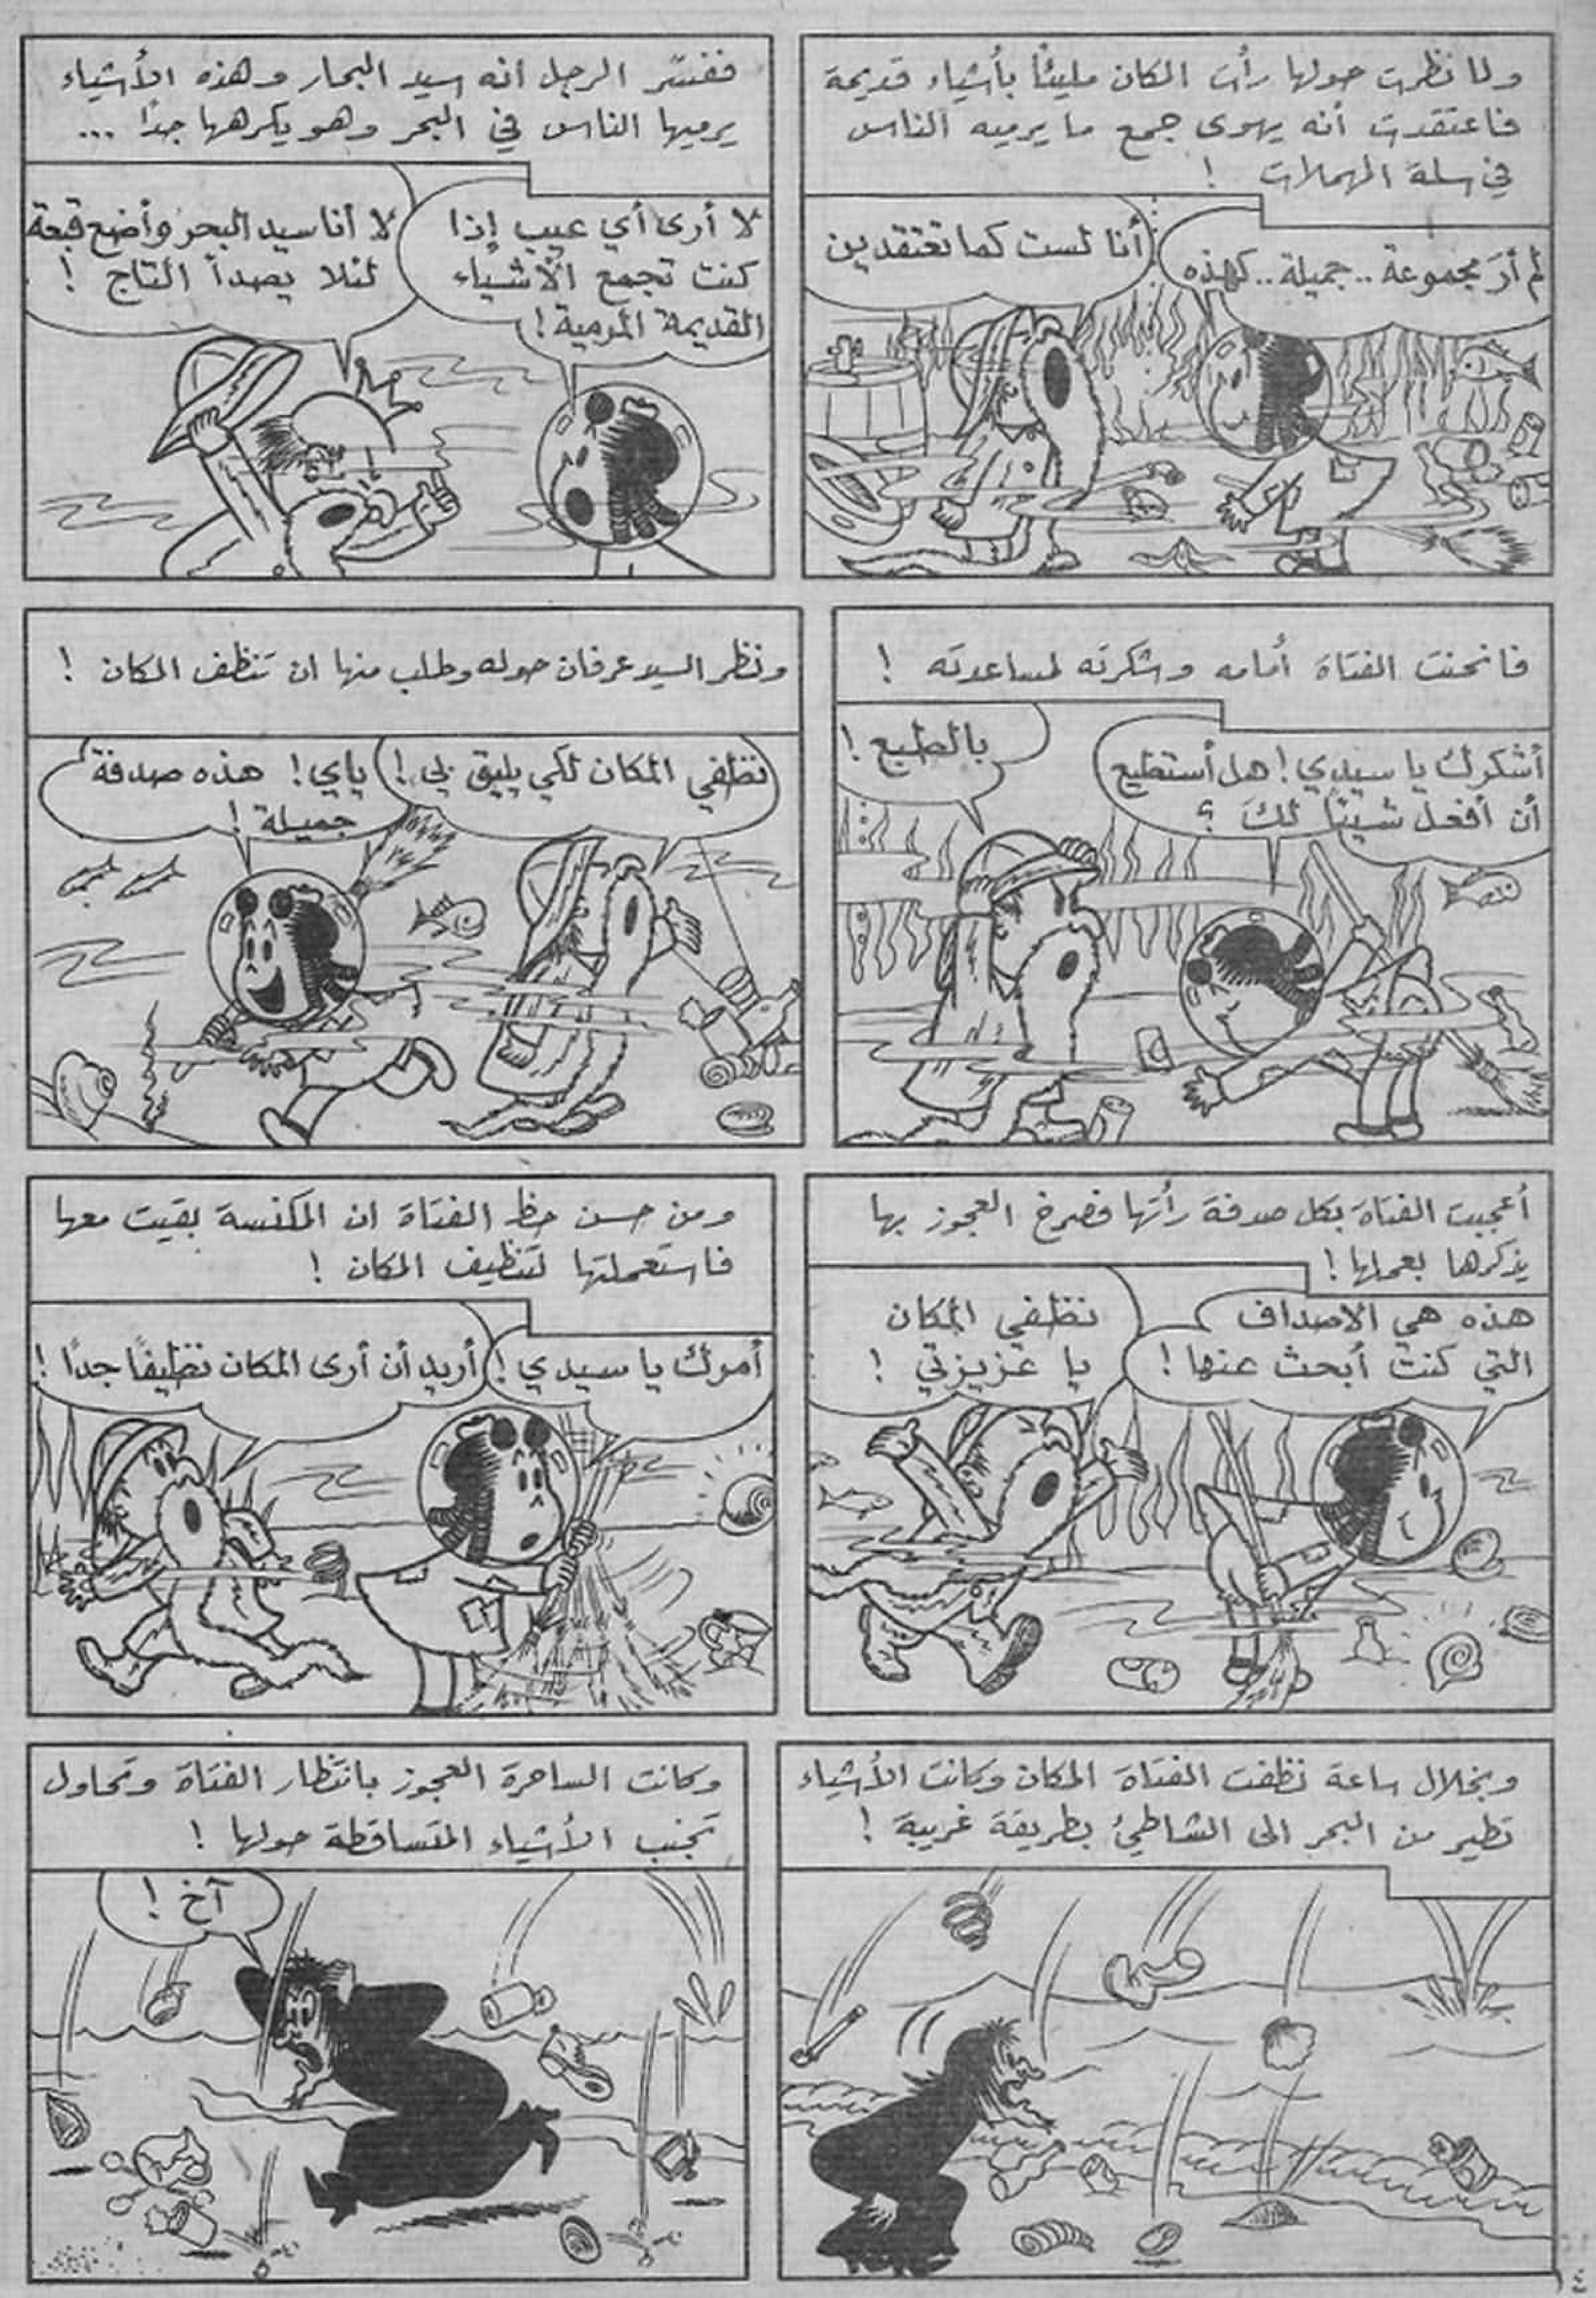 ولما نظرت حولها رأت المكان مليئاً بأشياء قديمة
فاعتقدت أنه يهوى جمع ما يرميه الناس
في سلة المهملات !
لم أرَ مجموعة .. جميلة .. كهذه
أنا لست كما تعتقدين
ففسّر الرجل انه سيد البحار وهذه الأشياء
يرميها الناس في البحر وهو يكرهها جدًا ...
لا أرى أي عيب إذا
كنت تجمع الأشياء
القديمة المرمية !
لا أنا سيد البحر وأضع قبعة
لئلا يصدأ التاج !
فانحنت الفتاة أمامه وشكرته لمساعدته !
أشكرك يا سيدي ! هل أستطيع
أن أفعل شيئًا لكَ ؟
بالطبع !
ونظر السيد عرفان حوله وطلب منها ان تنظف المكان !
نظفي المكان لكي يليق بي !
ياي ! هذه صدفة
جميلة !
أعجبت الفتاة بكل صدفة رأتها فصرخ العجوز بها
يذكرها بعملها !
هذه هي الاصداف
التي كنت أبحث عنها !
نظفي المكان
يا عزيزتي !
ومن حسن حظ الفتاة ان المكنسة بقيت معها
فاستعملتها لتنظيف المكان !
أمرك يا سيدي !
أريد أن أرى المكان نظيفًا جدًا !
وبخلال ساعة نظفت الفتاة المكان وكانت الأشياء
تطير من البحر الى الشاطئ بطريقة غريبة !
وكانت الساحرة العجوز بانتظار الفتاة وتحاول
تجنب الأشياء المتساقطة حولها !
آخ !
١٤